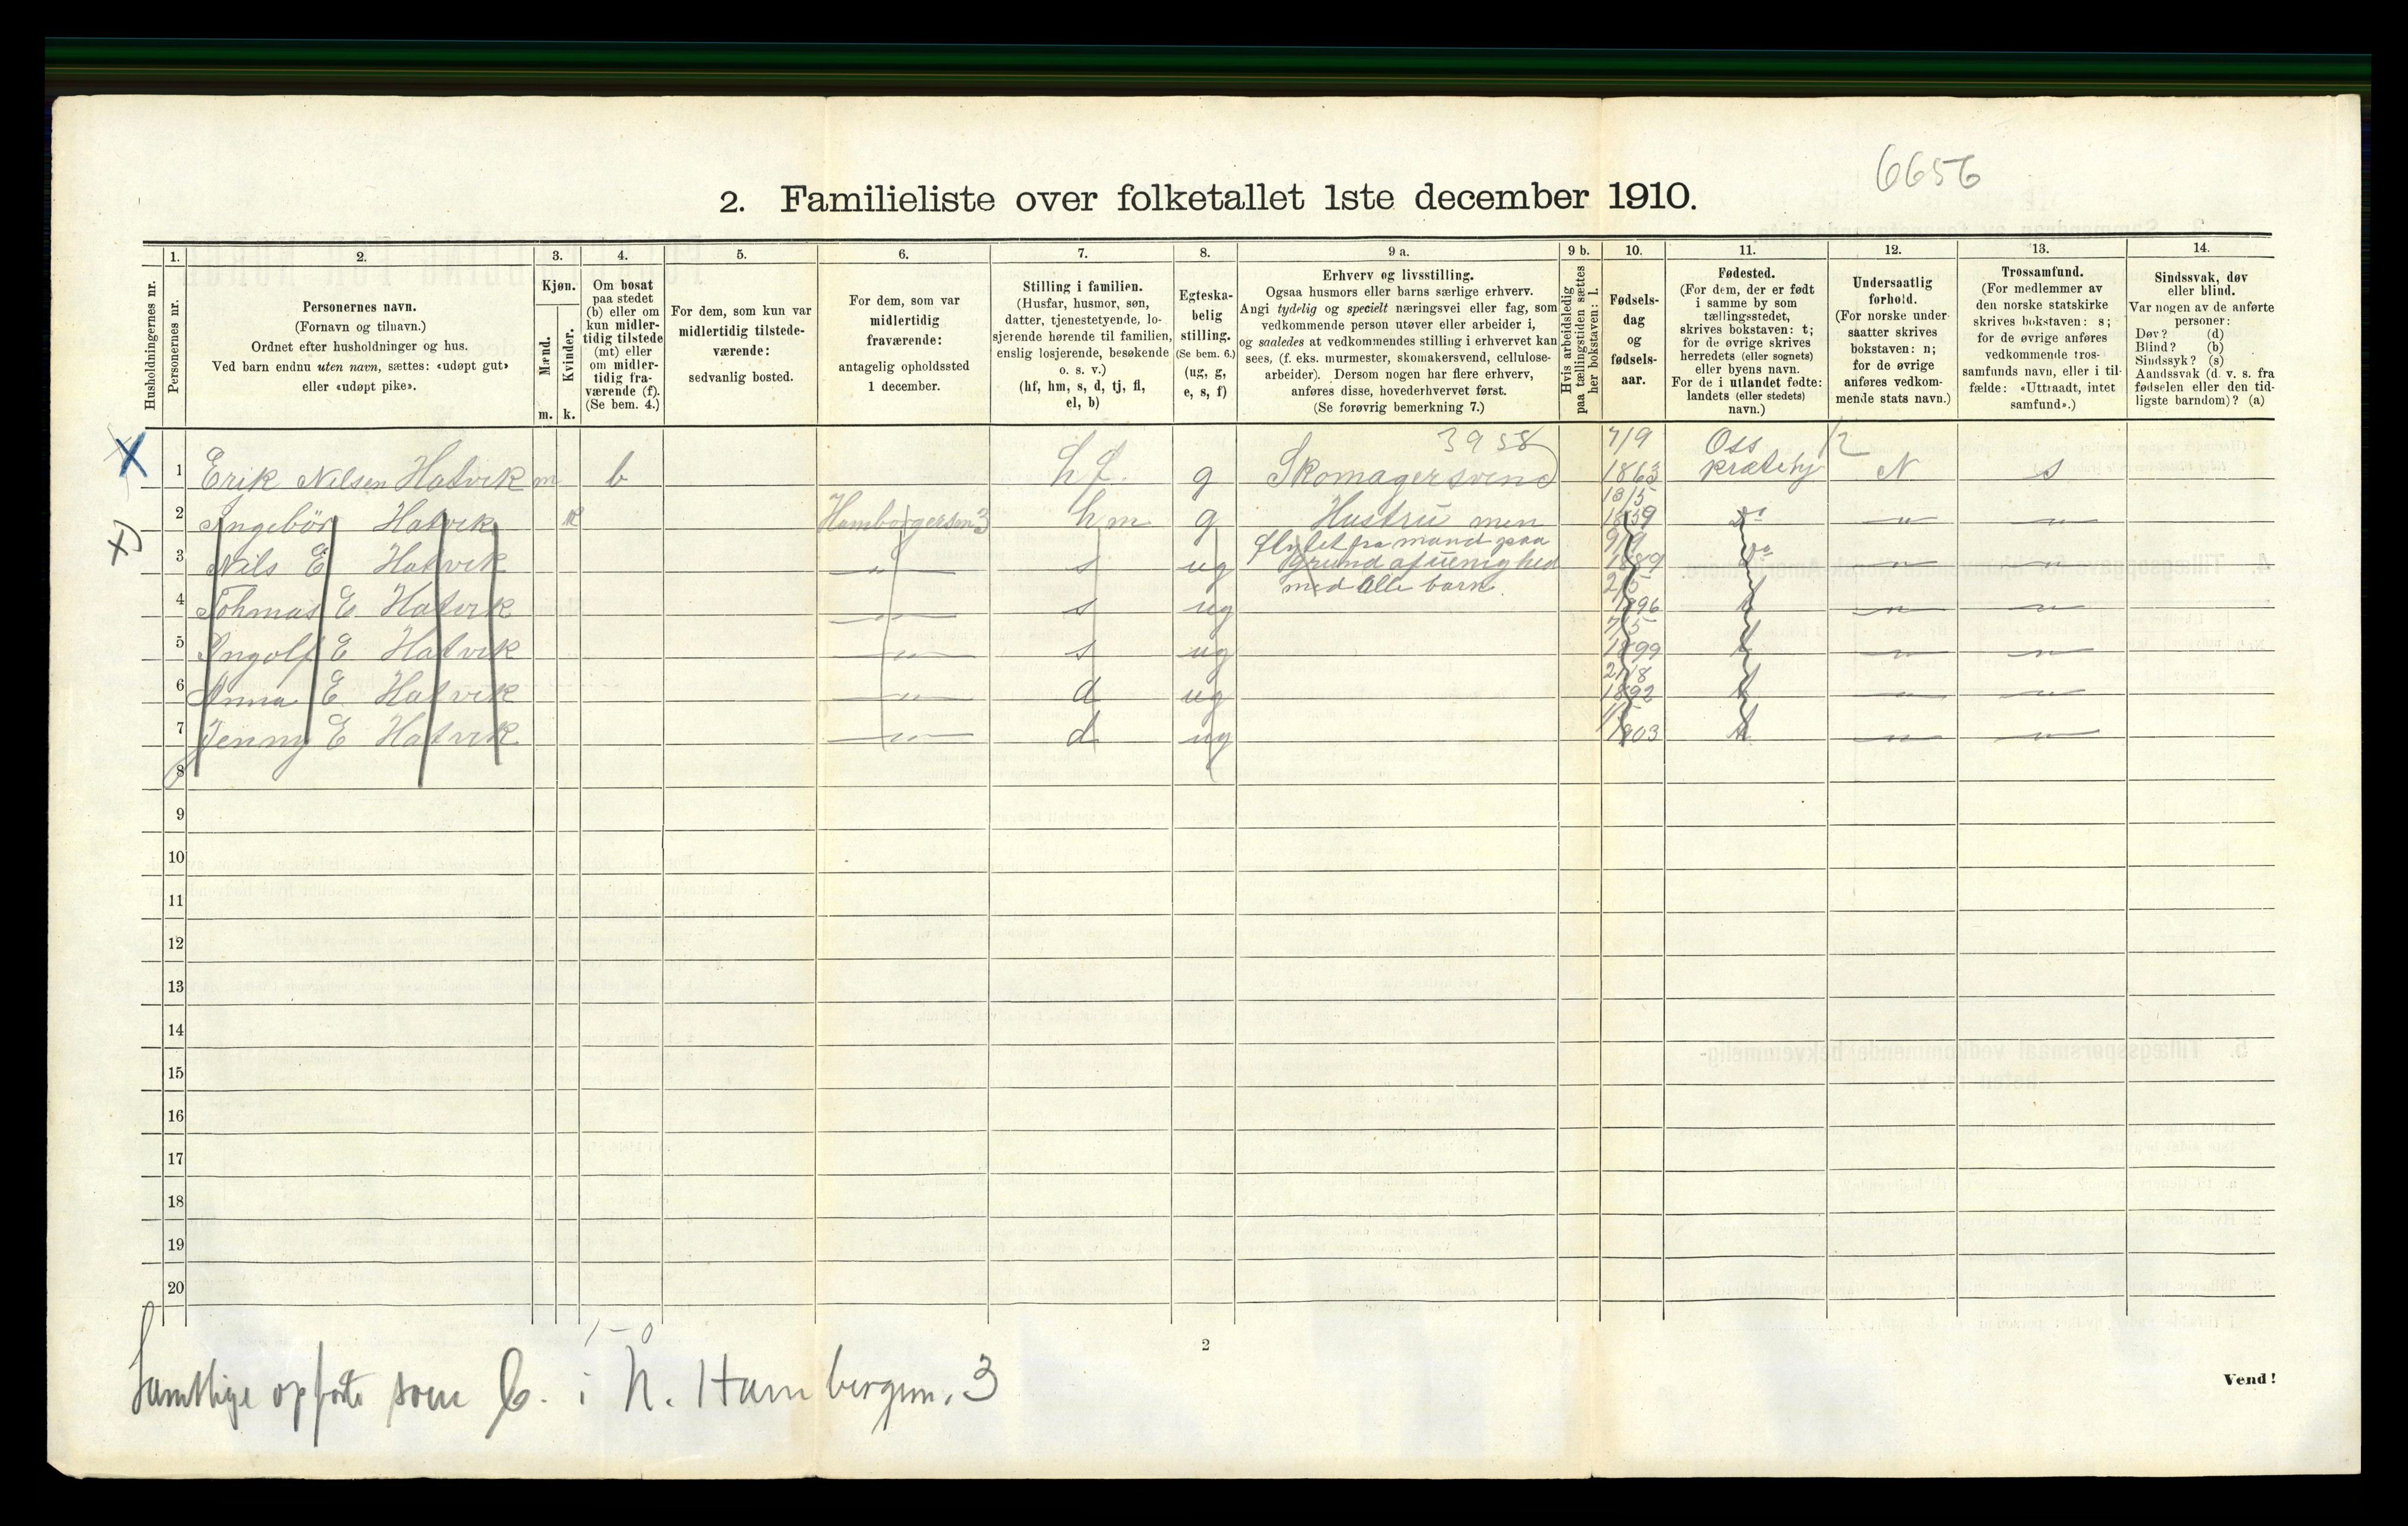 6656
2. Familieliste over folketallet 1ste december 1910.
Husholdningernes nr.
1.
Personernes nr.
2.
Personernes navn.
(Fornavn og tilnavn.)
Ordnet efter husholdninger og hus.
Ved barn endnu uten navn, sættes: «udøpt gut»
eller «udøpt pike».
3.
Kjøn.
Mænd.
Kvinder.
m. k.
4.
Om bosat
paa stedet
(b) eller om
kun midler-
tidig tilstede
(mt) eller
om midler-
tidig fra-
værende (f).
(Se bem. 4.)
5.
For dem, som kun var
midlertidig tilstede-
værende:
sedvanlig bosted.
6.
For dem, som var
midlertidig
fraværende:
antagelig opholdssted
1 december.
7.
Stilling i familien.
(Husfar, husmor, søn,
datter, tjenestetyende, lo-
sjerende hørende til familien,
enslig losjerende, besøkende
o. s. v.)
(hf, hm, s, d, tj, fl,
el, b)
8.
Egteska-
belig
stilling.
(Se bem. 6.)
(ug, g,
e, s, f)
9 a.
Erhverv og livsstilling.
Ogsaa husmors eller barns særlige erhverv.
Angi tydelig og specielt næringsvei eller fag, som
vedkommende person utøver eller arbeider i,
og saaledes at vedkommendes stilling i erhvervet kan
sees, (f. eks. murmester, skomakersvend, cellulose-
arbeider). Dersom nogen har flere erhverv,
anføres disse, hovederhvervet først.
(Se forøvrig bemerkning 7.)
9 b.
Hvis arbeidsledig
paa tællingstiden sættes
her bokstaven: l.
10.
Fødsels-
dag
og
fødsels-
aar.
11.
Fødested.
(For dem, der er født
i samme by som
tællingsstedet,
skrives bokstaven: t;
for de øvrige skrives
herredets (eller sognets)
eller byens navn.
For de i utlandet fødte:
landets (eller stedets)
navn.)
12.
Undersaatlig
forhold.
(For norske under-
saatter skrives
bokstaven: n;
for de øvrige
anføres vedkom-
mende stats navn.)
13.
Trossamfund.
(For medlemmer av
den norske statskirke
skrives bokstaven: s;
for de øvrige anføres
vedkommende tros-
samfunds navn, eller i til-
fælde: «Uttraadt, intet
samfund».)
14.
Sindssvak, døv
eller blind.
Var nogen av de anførte
personer:
Døv? (d)
Blind? (b)
Sindssyk? (s)
Aandssvak (d. v. s. fra
fødselen eller den tid-
ligste barndom)? (a)
3958 7/9 Oss
1 Erik Nilsen Hatvik m b hf. g Skomagersvend 1863 N s
13/5
2 Ingebör Hatvik k hm g Hustru men 1859 do " "
flytet fra mand paa 9/9
3 Nils E Hatvik " s ug Grund af uenighed 1889 do " "
med alle barn. 2/5
4 Tohmas E. Hatvik " s ug 1896 t " "
7/5
5 Ingolf E Hatvik " s ug 1899 t " "
21/8
6 Anna E. Hatvik " d ug 1892 t " "
7 Jenny E Hatvik " d ug 1903 t " "
8
9
10
11
12
13
14
15
16
17
18
19
20
1 – 0
2
Samtlige opførte som b. i N. Hambergsm. 3
Vend!